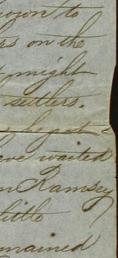 down to
rs on the
might
settlers.
he got
ave waited
n Ramsey
little
remained